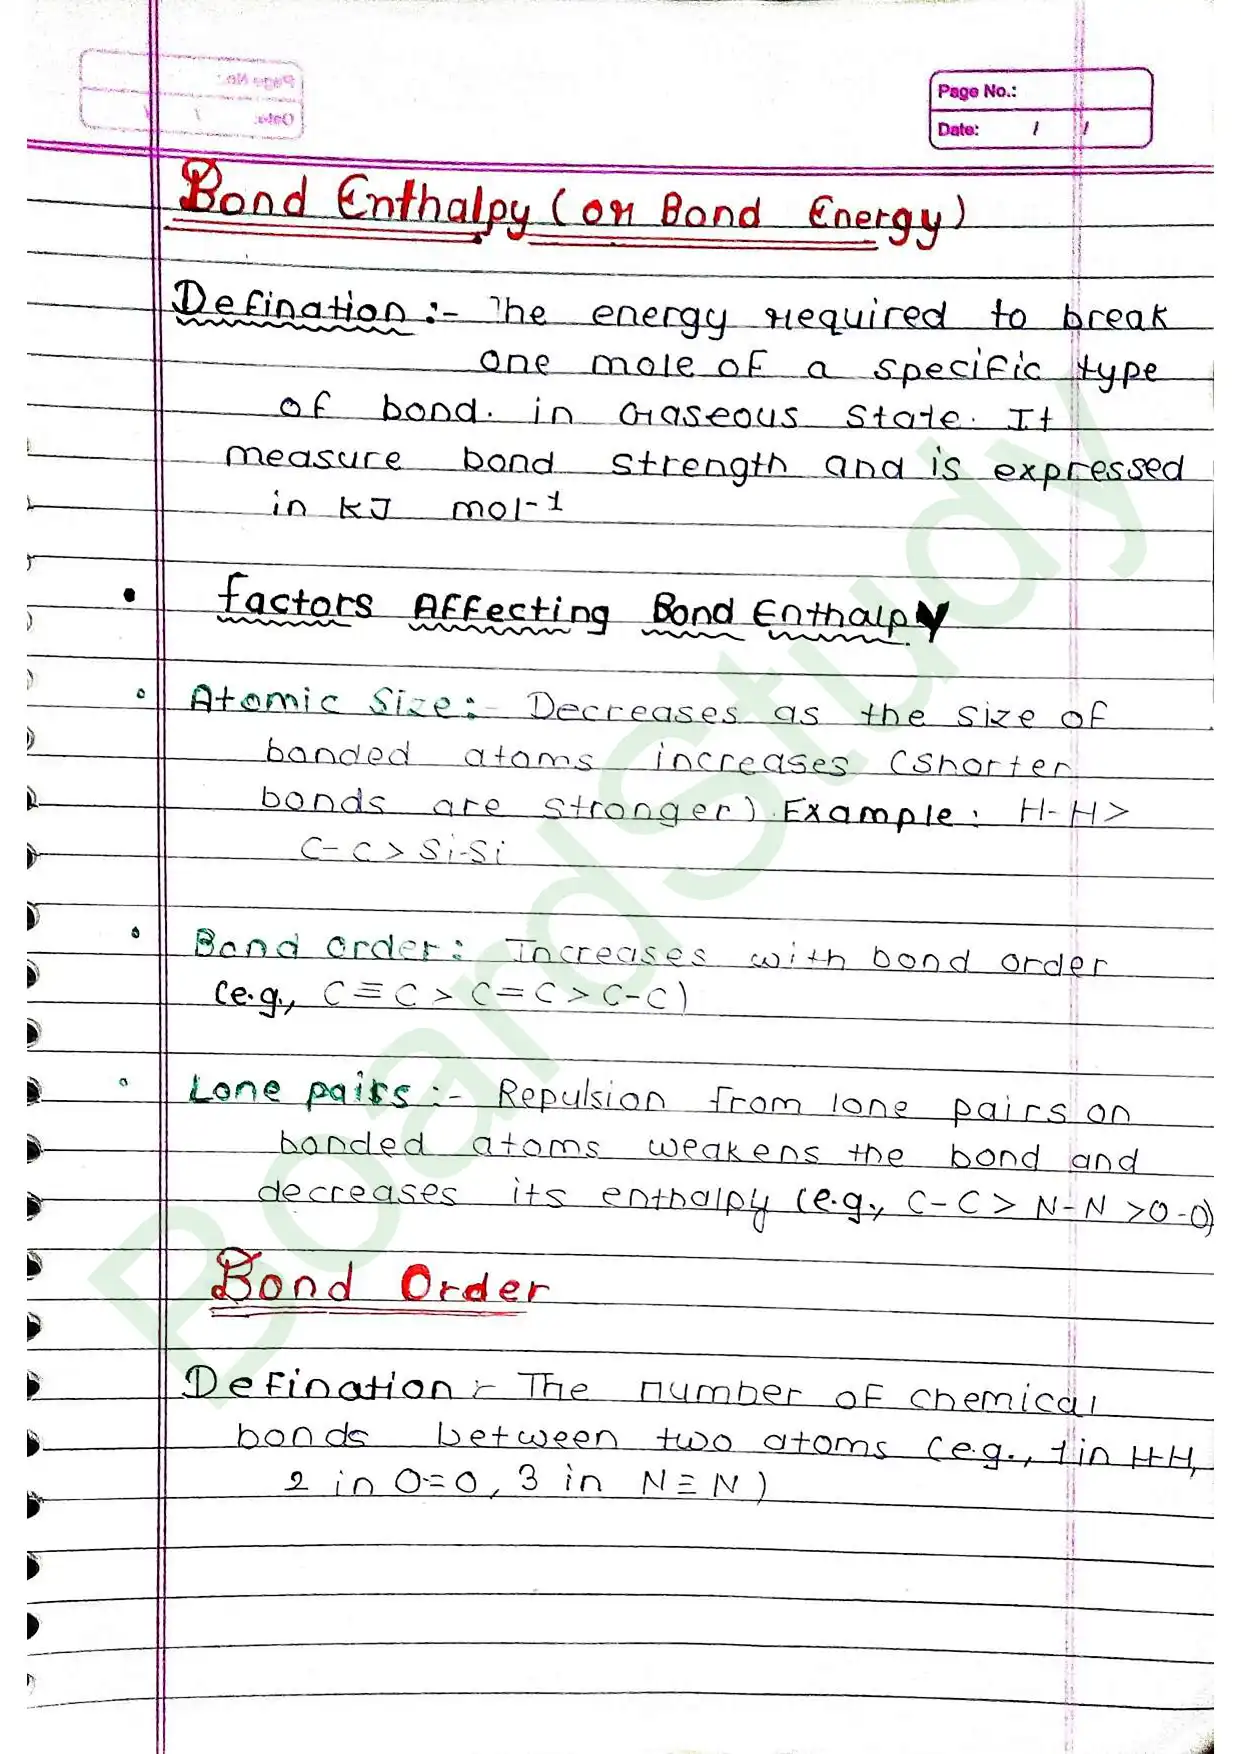 Page No.:
Date: / /
Bond Enthalpy (or Bond Energy)
Defination :- The energy required to break
one mole of a specific type
of bond. in Gaseous State. It
measure bond strength and is expressed
in KJ mol-1
• Factors Affecting Bond Enthalpy
◦ Atomic Size:- Decreases as the size of
bonded atoms increases (shorter
bonds are stronger). Example: H-H>
C-C> Si-Si
◦ Bond order: Increases with bond order
(e.g., C≡C > C=C > C-C)
◦ Lone pairs :- Repulsion from lone pairs on
bonded atoms weakens the bond and
decreases its enthalpy (e.g., C-C > N-N >O-O)
Bond Order
Defination :- The number of chemical
bonds between two atoms (e.g., 1 in H-H,
2 in O=O, 3 in N≡N)
BoardStudy